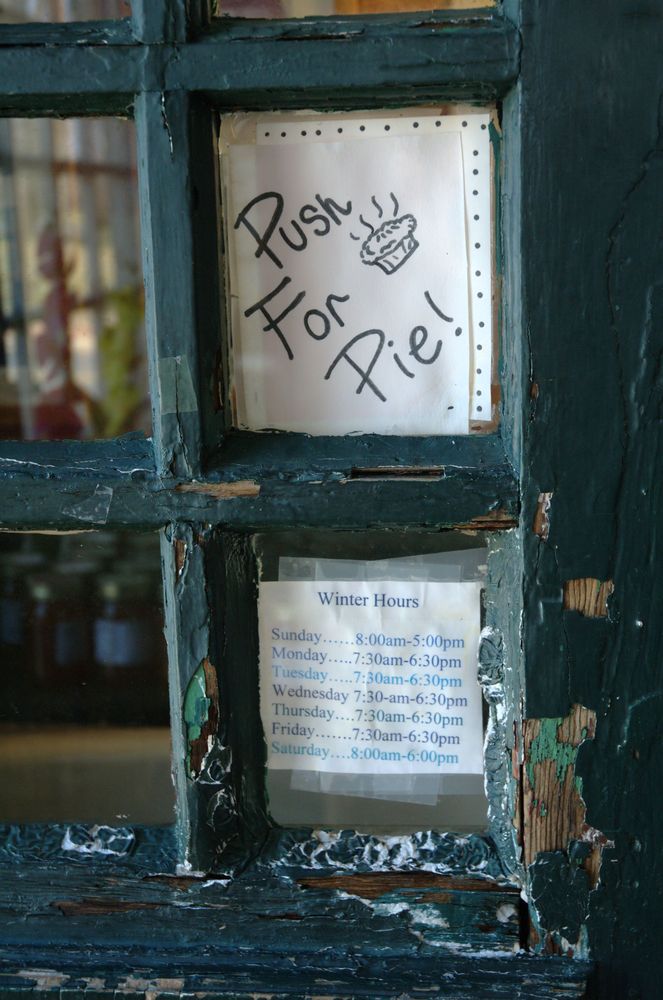 Push
For
Pie!
Winter Hours
Sunday......8:00am-5:00pm
Monday.....7:30am-6:30pm
Tuesday.....7:30am-6:30pm
Wednesday 7:30-am-6:30pm
Thursday....7:30am-6:30pm
Friday.......7:30am-6:30pm
Saturday....8:00am-6:00pm